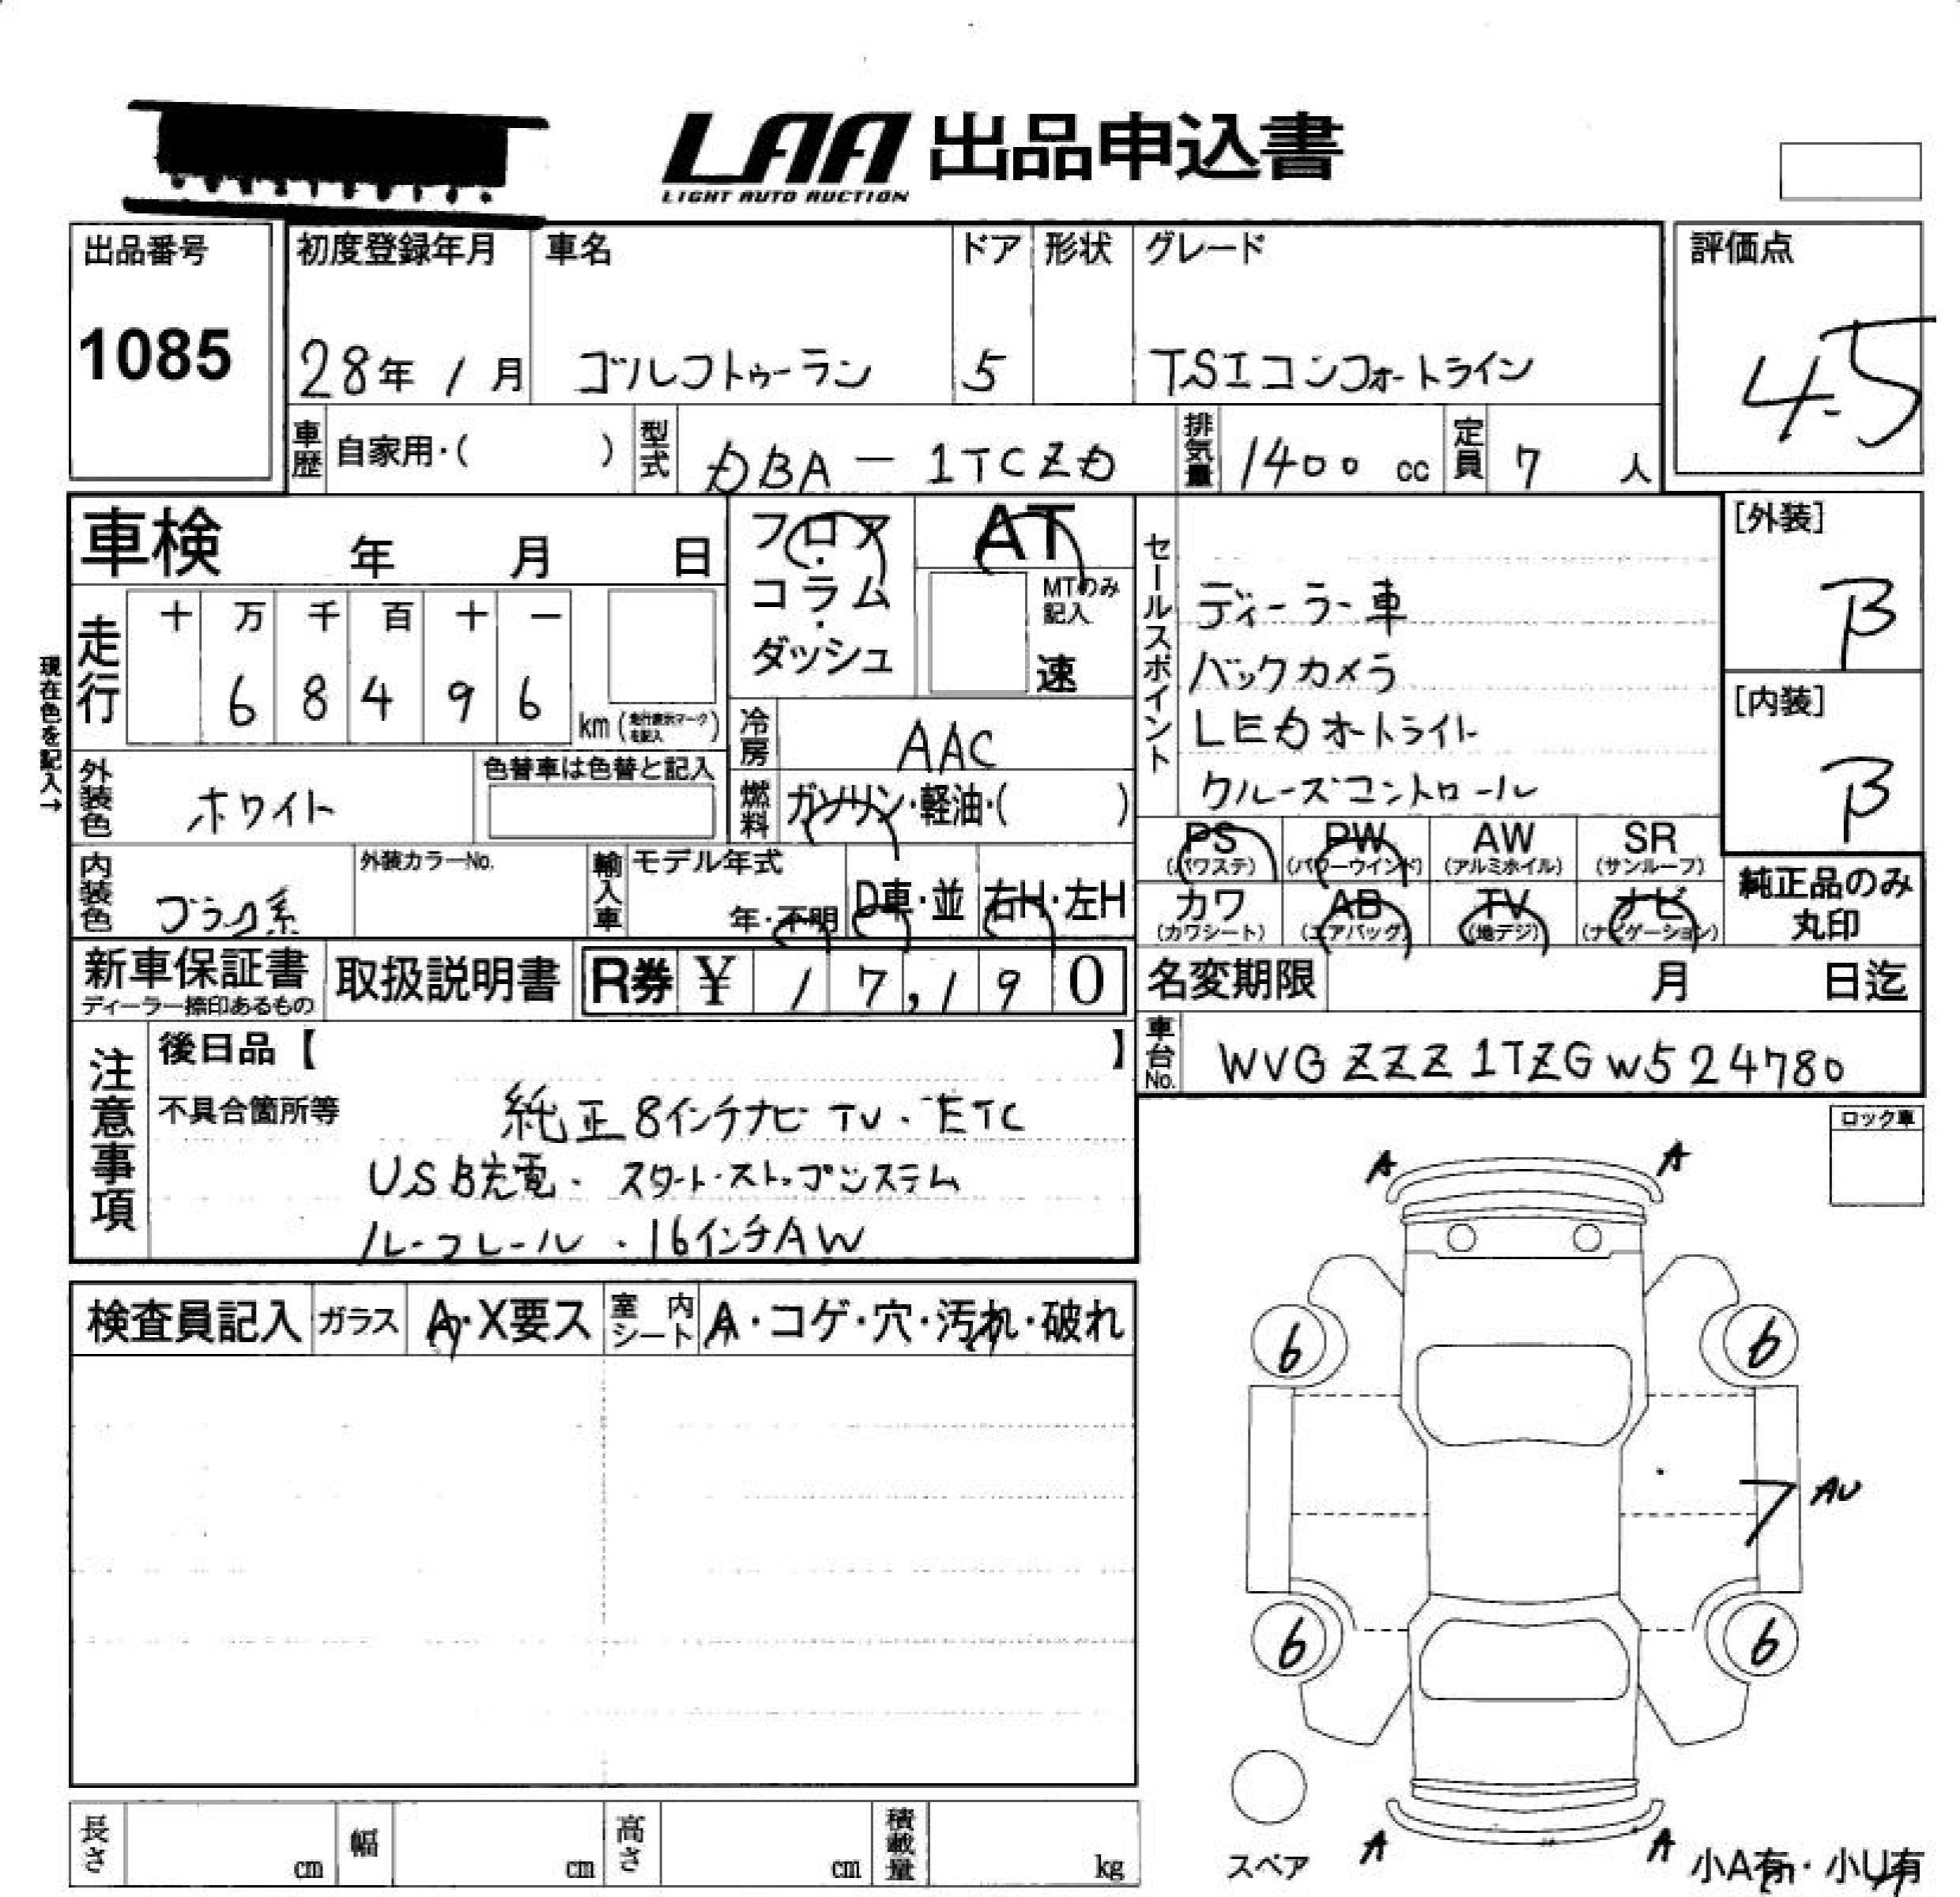 LAA 出品申込書
LIGHT AUTO AUCTION
出品番号 初度登録年月 車名 ドア 形状 グレード 評価点
1085 28年 1月 ゴルフトゥーラン 5 TSIコンフォートライン 4.5
車歴 自家用・( ) 型式 DBA-1TCZD 排気量 1400 cc 定員 7 人
車検 年 月 日
フロア・コラム・ダッシュ
AT
MTのみ記入
速
セールスポイント
ディーラー車
バックカメラ
LEDオートライト
クルーズコントロール
[外装]
B
[内装]
B
現在色を記入→
走行 十 万 千 百 十 一
6 8 4 9 6 km (走行表示マークを記入)
冷房 AAC
外装色 ホワイト 色替車は色替と記入
燃料 ガソリン・軽油・( )
PS (パワステ) PW (パワーウインド) AW (アルミホイル) SR (サンルーフ)
カワ (カワシート) AB (エアバッグ) TV (地デジ) ナビ (ナビゲーション)
純正品のみ丸印
内装色 ブラック系 外装カラーNo. 輸入車 モデル年式 年・不明 D車・並 右H・左H
新車保証書 ディーラー捺印あるもの 取扱説明書 R券 ¥ 17,190
名変期限 月 日迄
車台No. WVGZZZ1TZGW524780
注意事項
後日品【 】
不具合箇所等 純正8インチナビTV・ETC
USB充電・スタート・ストップシステム
ルーフレール・16インチAW
ロック車
検査員記入 ガラス A・X要ス 室内シート A・コゲ・穴・汚れ・破れ
A A
6 6
ｱ AU
6 6
A A
スペア
小A有・小U有
長さ cm 幅 cm 高さ cm 積載量 kg